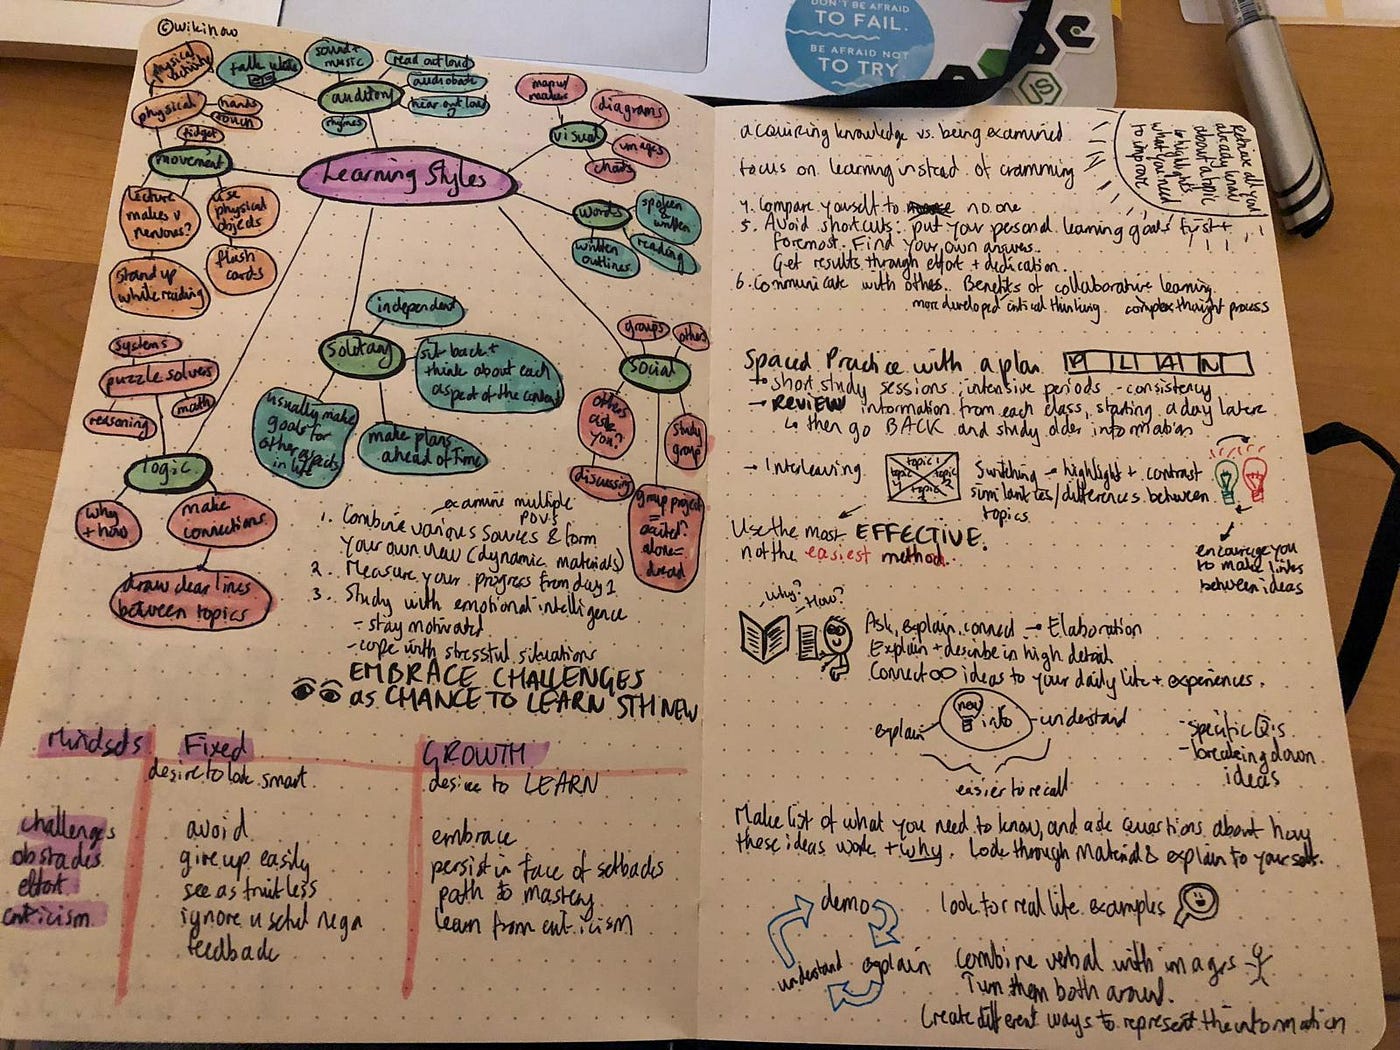 ©wikihow
physical activity
talk while
sound + music
read out loud
audiobook
hear out loud
rhymes
auditory
physical
hands
touch
fidget
movement
lecture makes u nervous?
use physical objects
stand up while reading
flash cards
Learning Styles
visual
diagrams
images
words
spoken & written
reading
written outlines
systems
puzzle solvers
math
reasoning
logic
why + how
make connections
draw clear lines between topics
independent
solitary
sit back + think about each aspect of the content
usually make goals for other aspects in life
make plans ahead of time
groups
others
social
others ask you?
study group
discussing
group project = excited? alone = dread
examine multiple POVs
1. Combine various sources & form
your own new (dynamic materials)
2. Measure your progress from day 1
3. Study with emotional intelligence
- stay motivated
- cope with stressful situations
EMBRACE CHALLENGES
as CHANCE TO LEARN STH NEW
Mindsets Fixed GROWTH
desire to look smart desire to LEARN
challenges avoid embrace
obstacles give up easily persist in face of setbacks
effort see as fruitless path to mastery
criticism ignore useful nega learn from criticism
feedback
DON'T BE AFRAID
TO FAIL.
BE AFRAID NOT
TO TRY.
JS
acquiring knowledge vs. being examined
focus on learning instead of cramming
Retrieve all
already know
about a topic
highlights
what you need
to improve
4. Compare yourself to no one
5. Avoid shortcuts: put your personal learning goals first +
foremost. Find your own answers.
Get results through effort + dedication.
6. Communicate with others. Benefits of collaborative learning
more developed critical thinking. complex thought process
Spaced Practice with a plan PLAN
short study sessions, intensive periods - consistency
→ REVIEW information from each class, starting a day later
↳ then go BACK and study older information
→ Interleaving
topic 1
topic
topic
topic
Switching → highlight + contrast
similarities/differences between
topics
encourage you
to make links
between ideas
Use the most EFFECTIVE.
not the easiest method.
Why?
How?
Ask, explain, connect → Elaboration
Explain + describe in high detail
Connect ideas to your daily life + experiences.
new info
explain understand
easier to recall
- specific Q's
- breaking down
ideas
Make list of what you need to know, and ask questions about how
these ideas work + why. Look through materials & explain to yourself.
demo
explain
understand
look for real life examples
combine verbal with images
Turn them both around.
Create different ways to represent the information